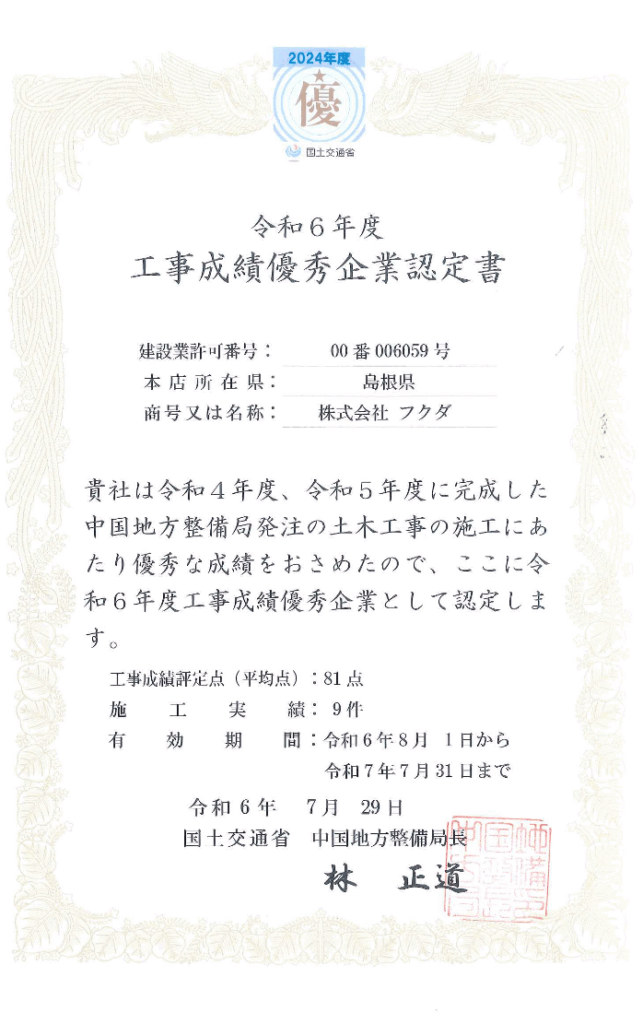 2024年度
優
国土交通省
令和６年度
工事成績優秀企業認定書
建設業許可番号： 00番006059号
本店所在県： 島根県
商号又は名称： 株式会社 フクダ
貴社は令和４年度、令和５年度に完成した
中国地方整備局発注の土木工事の施工にあ
たり優秀な成績をおさめたので、ここに令
和６年度工事成績優秀企業として認定しま
す。
工事成績評定点（平均点）：81点
施工実績：９件
有効期間：令和６年８月 １日から
令和７年７月31日まで
令和６年 ７月 29日
国土交通省 中国地方整備局長
林 正道